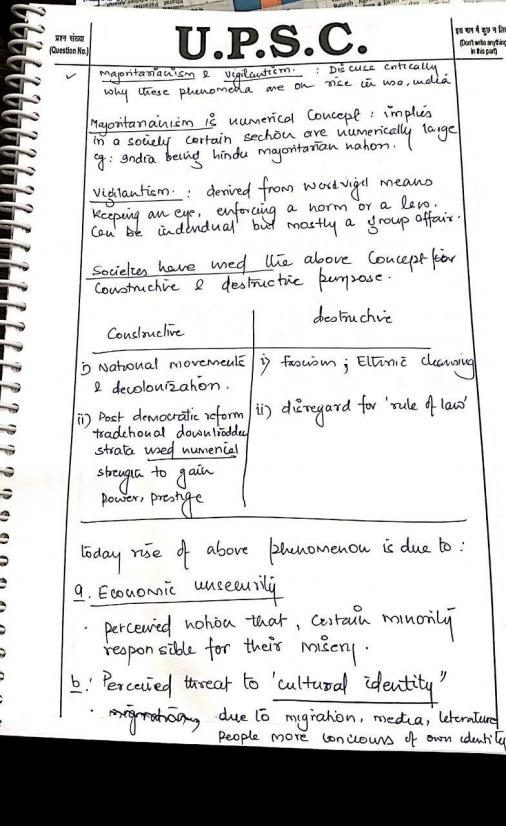 प्रश्न संख्या
(Question No.)
U.P.S.C.
इस भाग में कुछ न लि
(Don't write anything
in this part)
✓ Majoritarianism & Vigilantism : Discuss critically
why these phenomena are on rise in USA, India
Majoritarianism is numerical concept : implies
in a society certain section are numerically large
eg: India being hindu majoritarian nation.
Vigilantism : derived from word vigil means
keeping an eye, enforcing a norm or a law.
Can be individual but mostly a group affair.
Societies have used the above concept for
constructive & destructive purpose.
Constructive
destructive
i) National movements
& decolonization.
i) fascism ; Ethnic cleansing
ii) Post democratic reform
traditional downtrodden
strata used numerical
strength to gain
power, prestige
ii) disregard for 'rule of law'
Today rise of above phenomenon is due to :
a. Economic unsecurity
· perceived notion that, certain minority
responsible for their misery.
b. Perceived threat to 'cultural identity"
· due to migration, media, leterature
People more concious of own identity